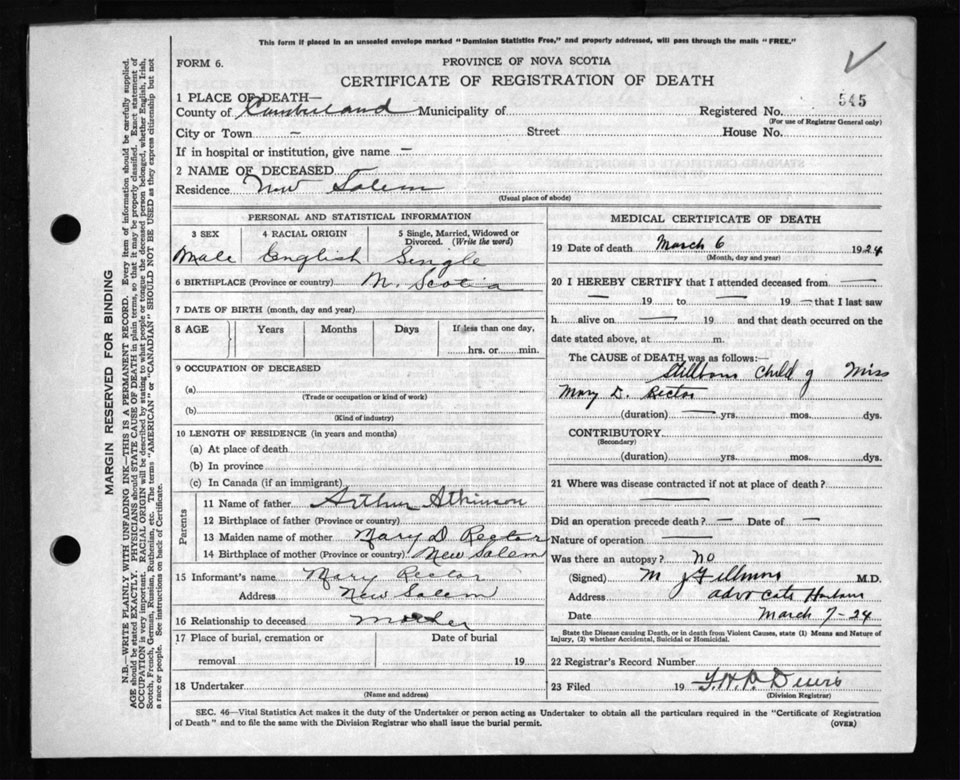 This form if placed in an unsealed envelope marked "Dominion Statistics Free," and properly addressed, will pass through the mails "FREE."
FORM 6.
PROVINCE OF NOVA SCOTIA
CERTIFICATE OF REGISTRATION OF DEATH
1 PLACE OF DEATH—
County of Cumberland Municipality of Registered No. 545
(For use of Registrar General only)
City or Town – Street House No.
If in hospital or institution, give name –
2 NAME OF DECEASED
Residence New Salem
(Usual place of abode)
PERSONAL AND STATISTICAL INFORMATION
3 SEX 4 RACIAL ORIGIN 5 Single, Married, Widowed or Divorced. (Write the word)
Male English Single
6 BIRTHPLACE (Province or country) N. Scotia
7 DATE OF BIRTH (month, day and year)
8 AGE Years Months Days If less than one day,
hrs. or min.
9 OCCUPATION OF DECEASED
(a)
(Trade or occupation or kind of work)
(b)
(Kind of industry)
10 LENGTH OF RESIDENCE (in years and months)
(a) At place of death
(b) In province
(c) In Canada (if an immigrant)
Parents
11 Name of father Arthur Atkinson
12 Birthplace of father (Province or country)
13 Maiden name of mother Mary D. Rector
14 Birthplace of mother (Province or country) New Salem
15 Informant's name Mary Rector
Address New Salem
16 Relationship to deceased Mother
17 Place of burial, cremation or Date of burial
removal 19
18 Undertaker
(Name and address)
MEDICAL CERTIFICATE OF DEATH
19 Date of death March 6 1924
(Month, day and year)
20 I HEREBY CERTIFY that I attended deceased from —
— 19 — to — 19 — that I last saw
h alive on — 19 and that death occurred on the
date stated above, at m.
The CAUSE of DEATH was as follows:—
Stillborn child of Miss
Mary D. Rector
(duration) — yrs. mos. dys.
CONTRIBUTORY
(Secondary)
(duration) yrs. mos. dys.
21 Where was disease contracted if not at place of death?
—
Did an operation precede death? – Date of –
Nature of operation —
Was there an autopsy? no
(Signed) M. J. Fillmore M.D.
Address Advocate Harbour
Date March 7–24
State the Disease causing Death, or in death from Violent Causes, state (1) Means and Nature of Injury, (2) whether Accidental, Suicidal or Homicidal.
22 Registrar's Record Number
23 Filed 19
(Division Registrar)
SEC. 46—Vital Statistics Act makes it the duty of the Undertaker or person acting as Undertaker to obtain all the particulars required in the "Certificate of Registration
of Death" and to file the same with the Division Registrar who shall issue the burial permit.
(OVER)
MARGIN RESERVED FOR BINDING
N.B.—WRITE PLAINLY WITH UNFADING INK—THIS IS A PERMANENT RECORD. Every item of information should be carefully supplied.
AGE should be stated EXACTLY. PHYSICIANS should STATE CAUSE OF DEATH in plain terms, so that it may be properly classified. Exact statement of
OCCUPATION is very important. RACIAL ORIGIN will be described by stating to what people or tongue the deceased person belonged, whether English, Irish,
Scotch, French, German, Russian, Ruthenian, etc. The terms "AMERICAN" or "CANADIAN" SHOULD NOT BE USED as they express citizenship but not
a race or people. See instructions on back of Certificate.